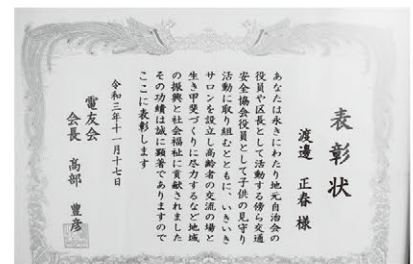 表彰状
渡邊 正春 様
あなたは永きにわたり地元自治会の
役員や区長として活動する傍ら交通
安全協会役員として子供の見守り
活動に取り組むとともに、いきいき
サロンを設立し高齢者の交流の場と
生き甲斐づくりに尽力するなど地域
の振興と社会福祉に貢献されました
その功績は誠に顕著でありますので
ここに表彰します
令和三年十一月十七日
電友会
会長 高部 豊彦